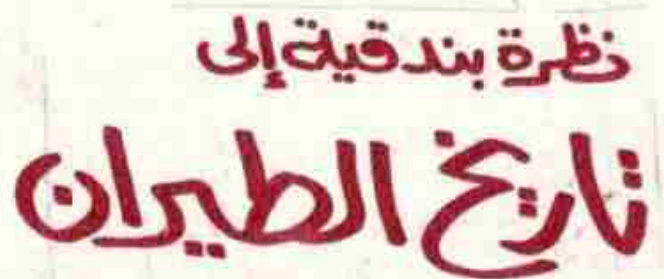 نظرة بندقية إلى
تاريخ الطيران